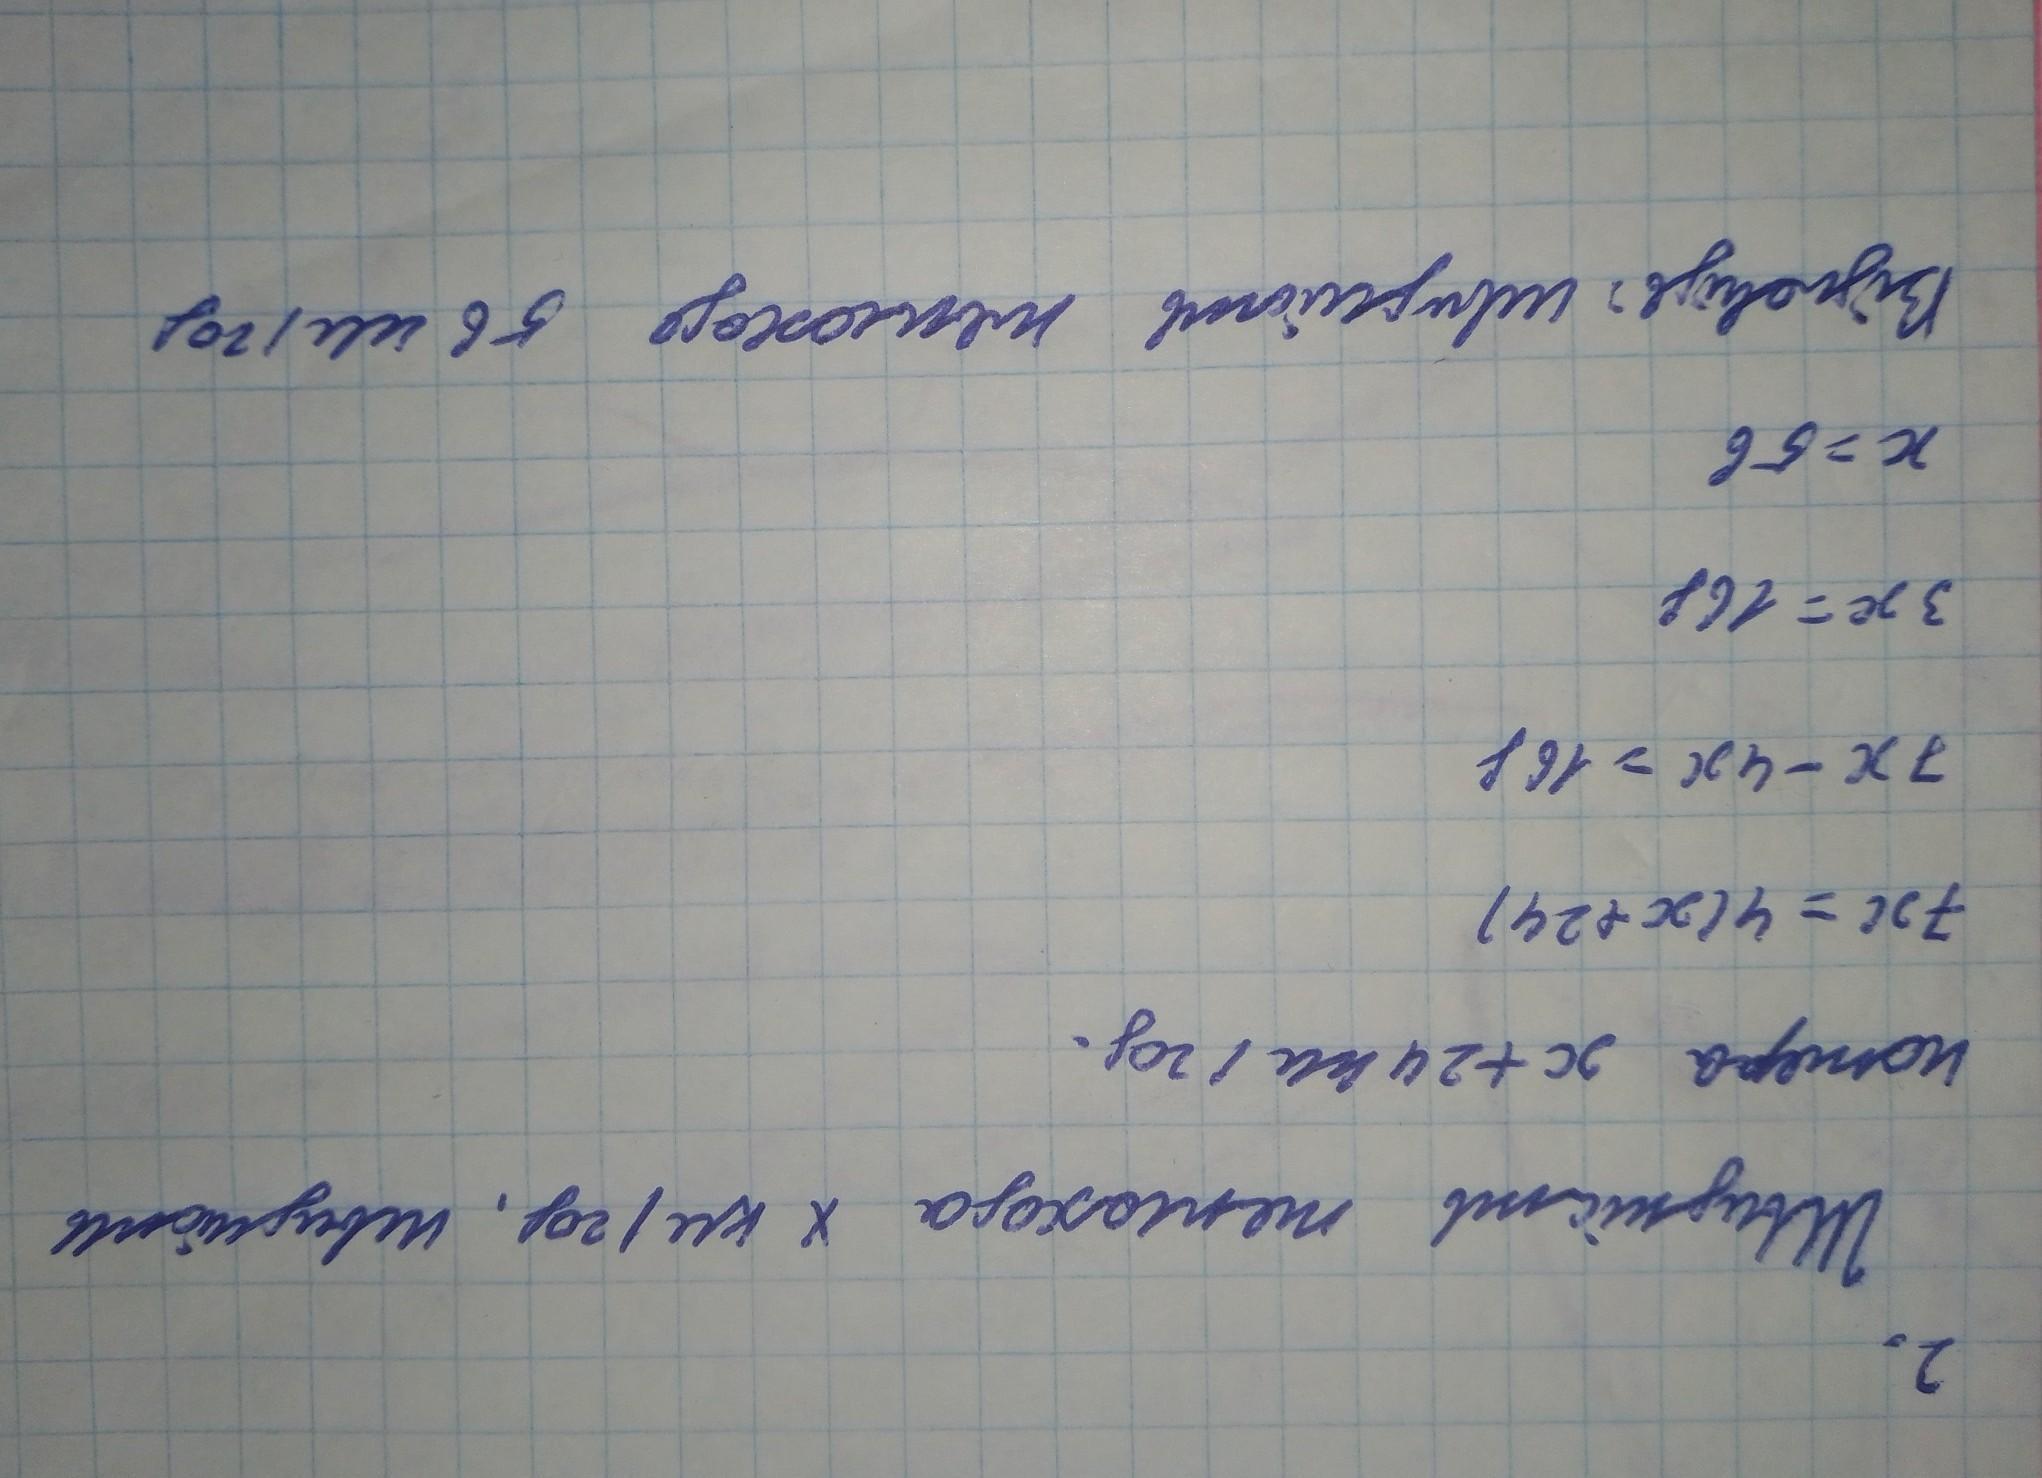 2.
Швидкість теплохода x км/год, швидкість
катера x+24 км/год.
7x = 4(x+24)
7x - 4x = 168
3x = 168
x = 56
Відповідь: швидкість теплоход 56 км/год